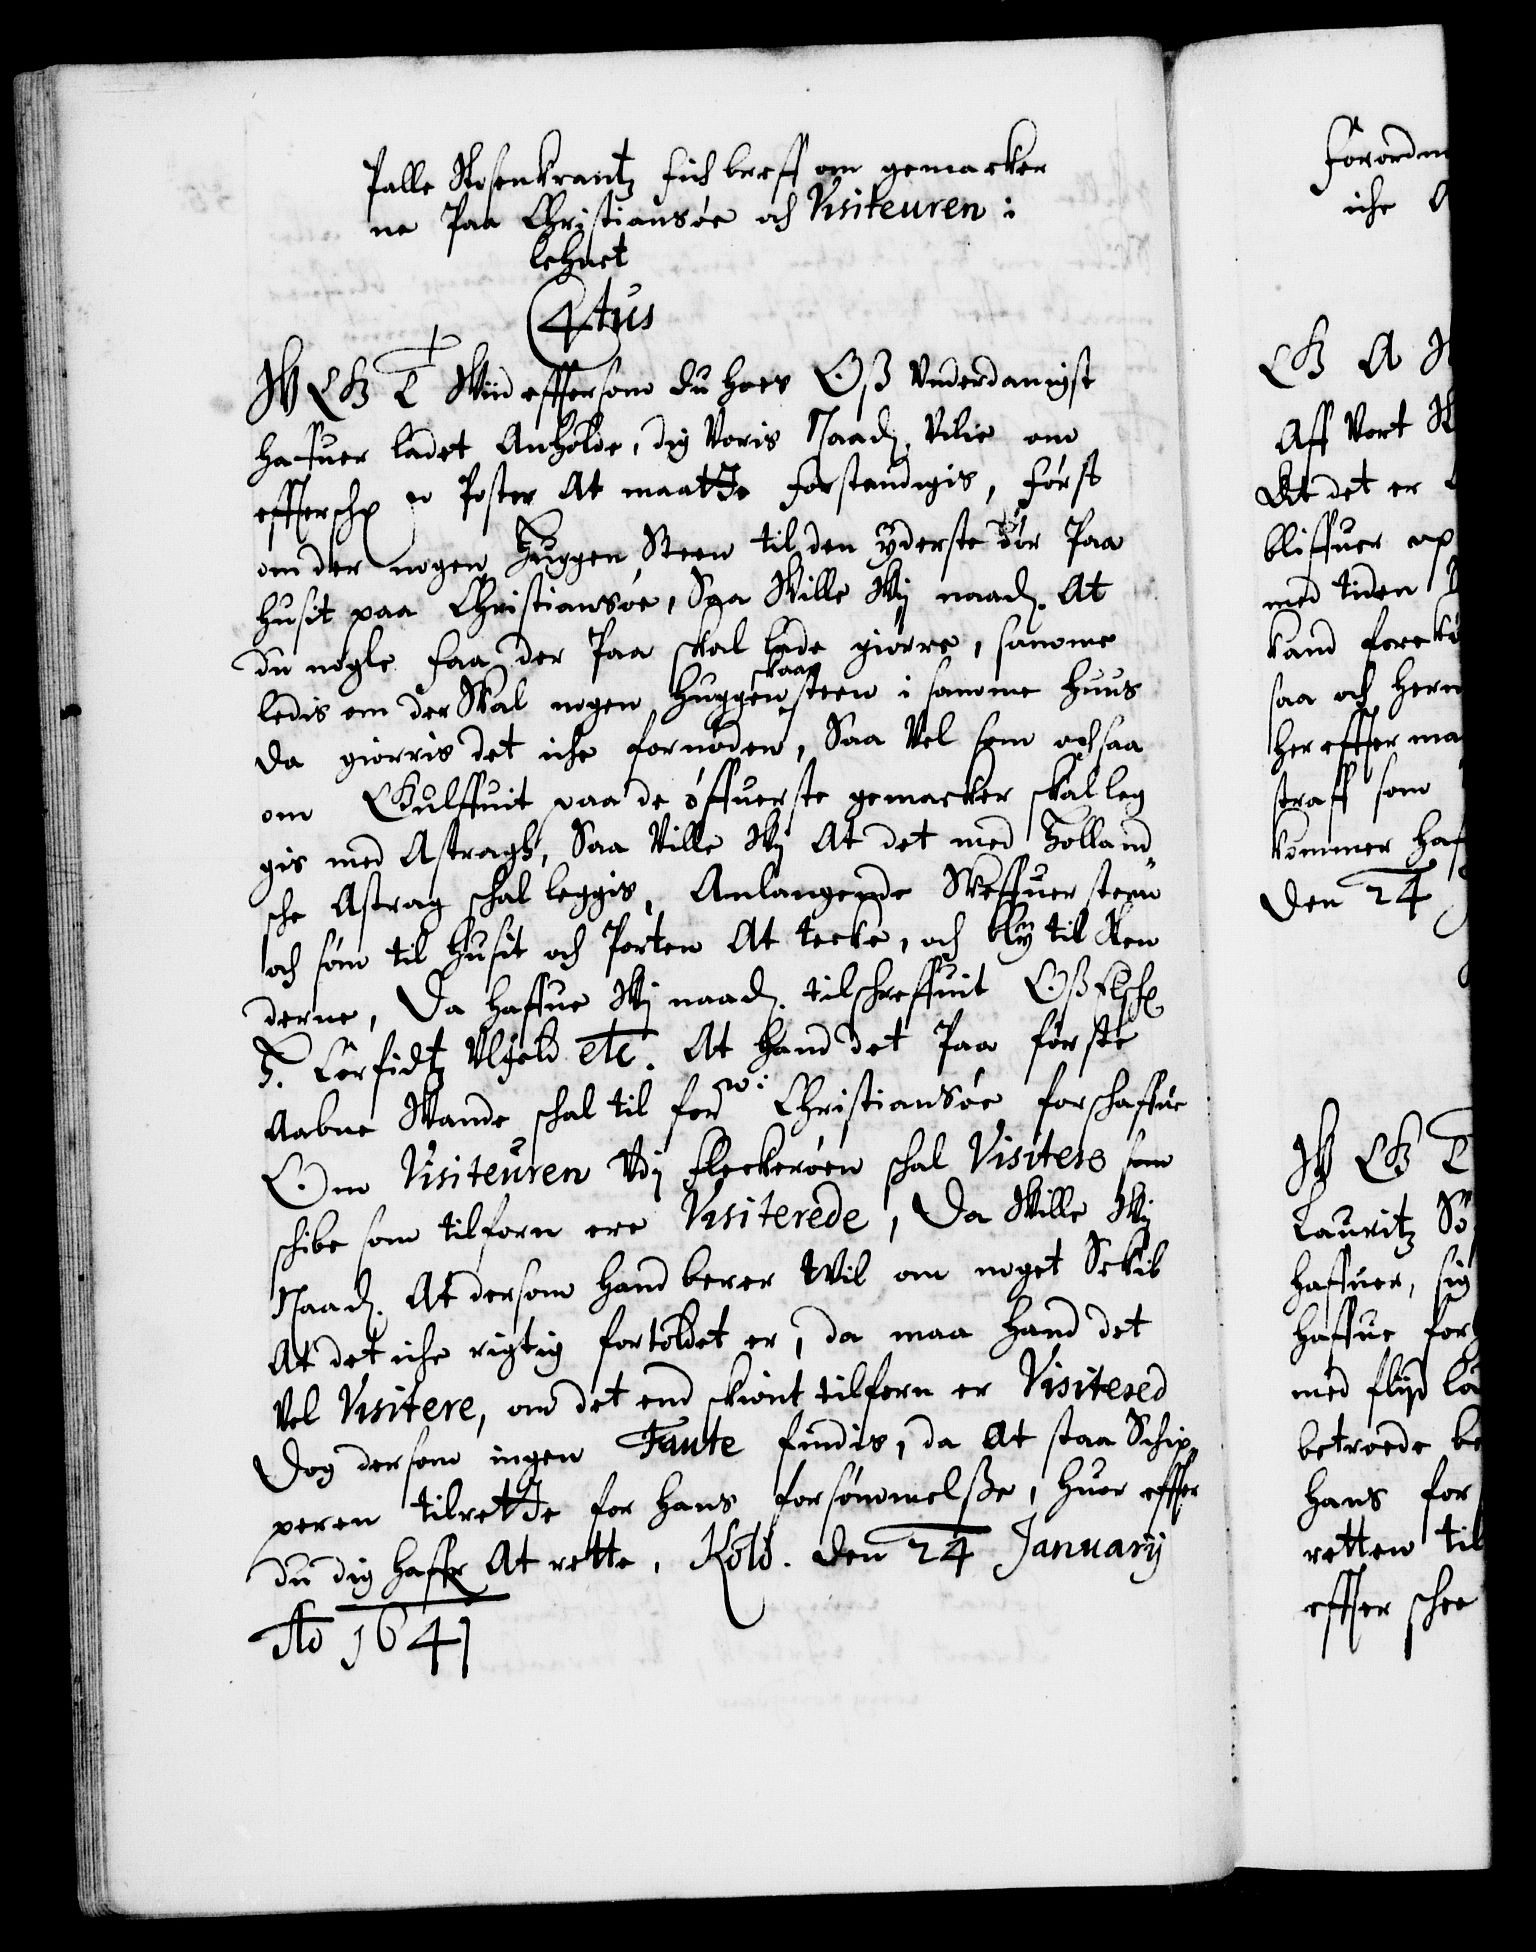 Palle Rosenkrantz fich breff om gemacker
ne Paa Christiansøe och Visiteuren i
lehnet
C 4tus
W G T Wiid effterson du hoes Oss Vnderdanigst
haffuer ladet Anholde, dig Voris Naad. Vilie om
effterschr. Poster At maatte forstendigis, først
om der nogen Huggen Steen til den ÿderste dör Paa
husit paa Christiansøe, Saa Wille Wij naad. At
du nogle faa der Paa skal lade giörre, samme
ledis om der Skal nogen Huggen skaarsteen i samme Huus
da giörris det iche fornöden, Saa Vel som ochsaa
om Gulffuit paa de öffuerste gemacker skal leg
gis med Astragh, Saa Ville Wij At det med Holland
sche Astrag schal leggis, Anlangende Skeffuersteen
och söm til husit och Porten At tecke, och blÿ til Ren
derne, Da haffue Wij naad. tilschreffuit Oss Elsch.
H. Corfidtz Vlfeld etc. At hand det Paa förste
Aabne Wande schal til for: Christiansøe forschaffue
Om Visiteuren Vdj Fleckeröen schal Visitere som
schibe som tilforn ere Visiterede, Da Wille Wij
Naad. At dersom hand berer tvil om noget Sckib
At det iche rigtig fortoldet er, da maa hand det
Vel Visitere, om det end skiönt tilforn er Visitered
Dog dersom ingen Faute findis, da At staa Schip
peren tilrette for hans forsömmelsse, huor effter
du dig haffr At rette, Kold. den 24 Januarij
Ao 1641
Forordn
iche
G A
Aff Vort
At det er
bliffuer op
med tiden
kand forekö
saa och hern
her effter ma
straff som
kommer haf
Den 24
W G T
Lauritz Sö
haffuer, sig
haffue for
med flijd la
betroede be
hans for
retten til
effter schee